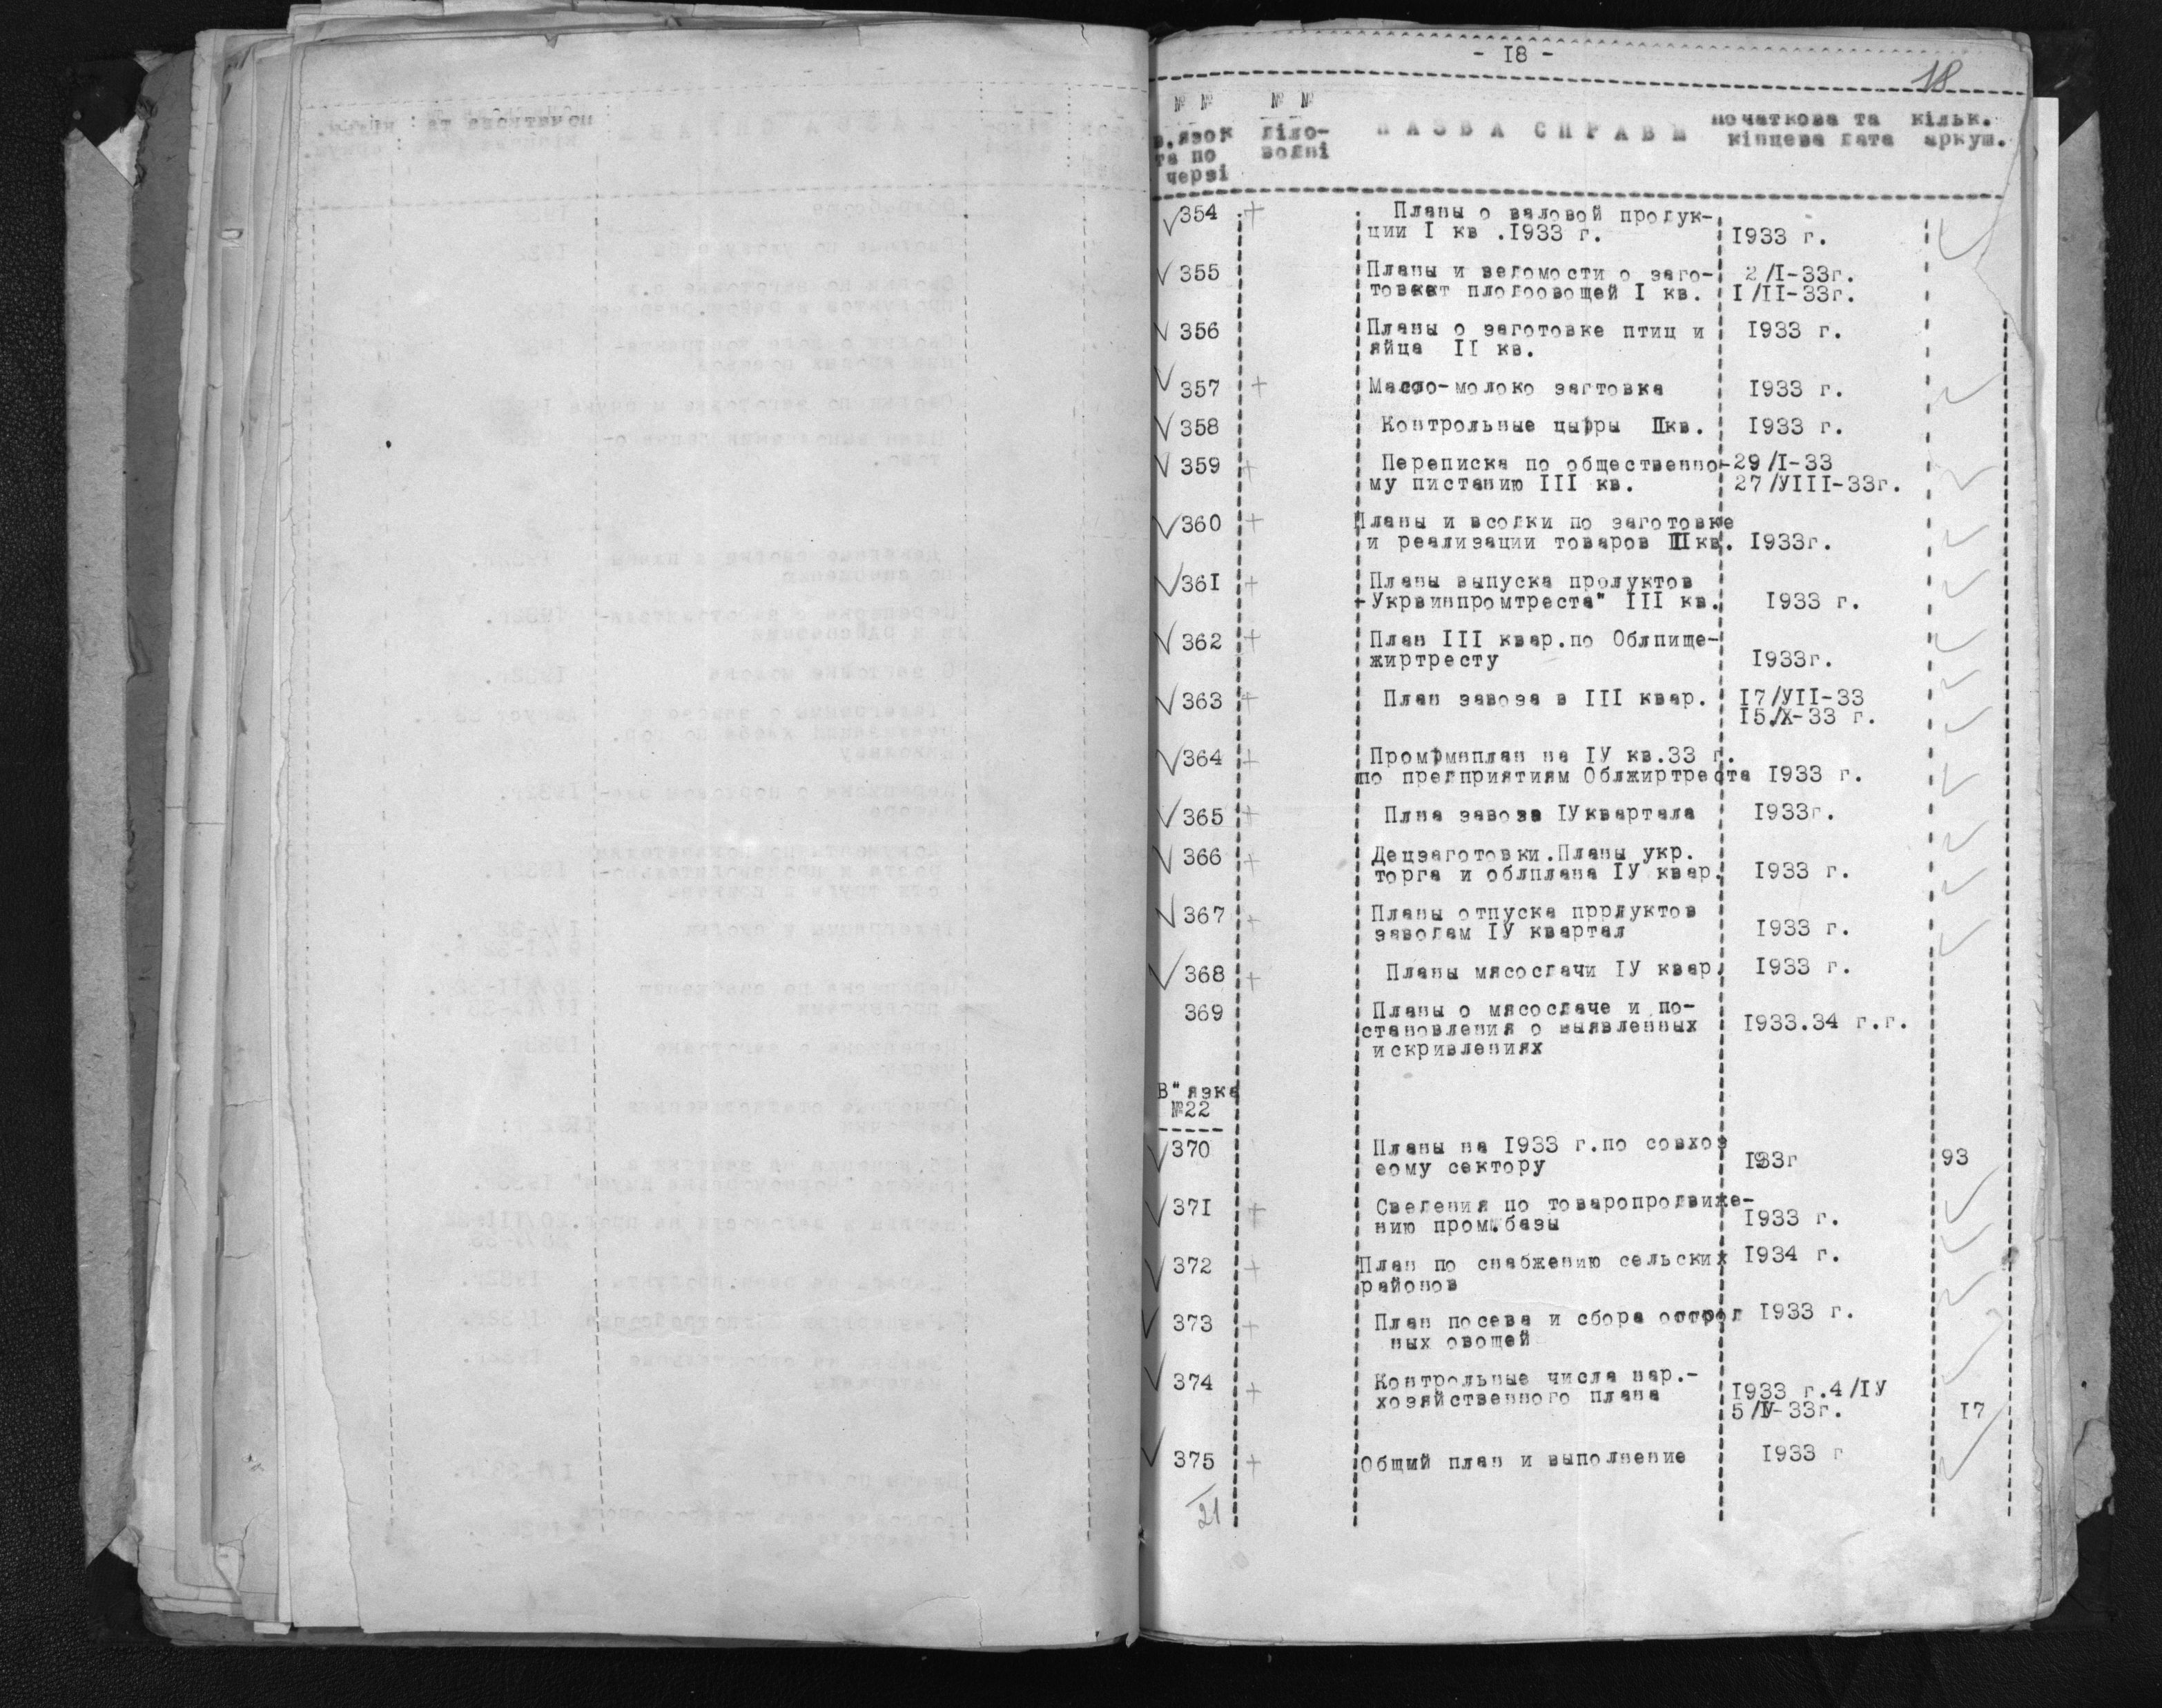 - I8 -
18
№ № № №
в.язок діло- НАЗВА СПРАВИ початкова та кільк.
та по водні кінцева дата аркуш.
черзі
354 + Планы о валовой продук-
ции I кв .I933 г. I933 г.
355 Планы и ведомости о заго- 2/I-33г.
товкет плодоовощей I кв. I/II-33г.
356 Планы о заготовке птиц и I933 г.
яйца II кв.
357 + Масло-молоко загтовка I933 г.
358 Контрольные цыфры IIкв. I933 г.
359 + Переписка по общественно- 29/I-33
му пистанию III кв. 27/УIII-33г.
360 + Планы и всодки по заготовке
и реализации товаров III кв. I933г.
36I + Планы выпуска продуктов
-Укрвинпромтреста" III кв. I933 г.
362 + План III квар.по Облпище-
жиртресту I933г.
363 + План завоза в III квар. I7/УII-33
I5/X-33 г.
364 + Промфмнплан на IУ кв.33 г.
по предприятиям Облжиртреста I933 г.
365 + Плна завоза IУквартала I933г.
366 + Децзаготовки.Планы укр.
торга и облплана IУ квар. I933 г.
367 + Планы отпуска пррдуктов
заводам IУ квартал I933 г.
368 + Планы мясосдачи IУ квар. I933 г.
369 Планы о мясосдаче и по-
становления о выявленных I933.34 г.г.
искривлениях
В"язка
№22
370 Планы на I933 г.по совхоз
еому сектору I933г 93
37I + Сведения по товаропродвиже-
нию пром.базы I933 г.
372 + План по снабжению сельских I934 г.
районов
373 + План посева и сбора I933 г.
ных овощей
374 + Контрольные числа нар.-
хозяйственного плана I933 г.4/IУ
5/IУ-33г. I7
375 + Общий план и выполнение I933 г
21